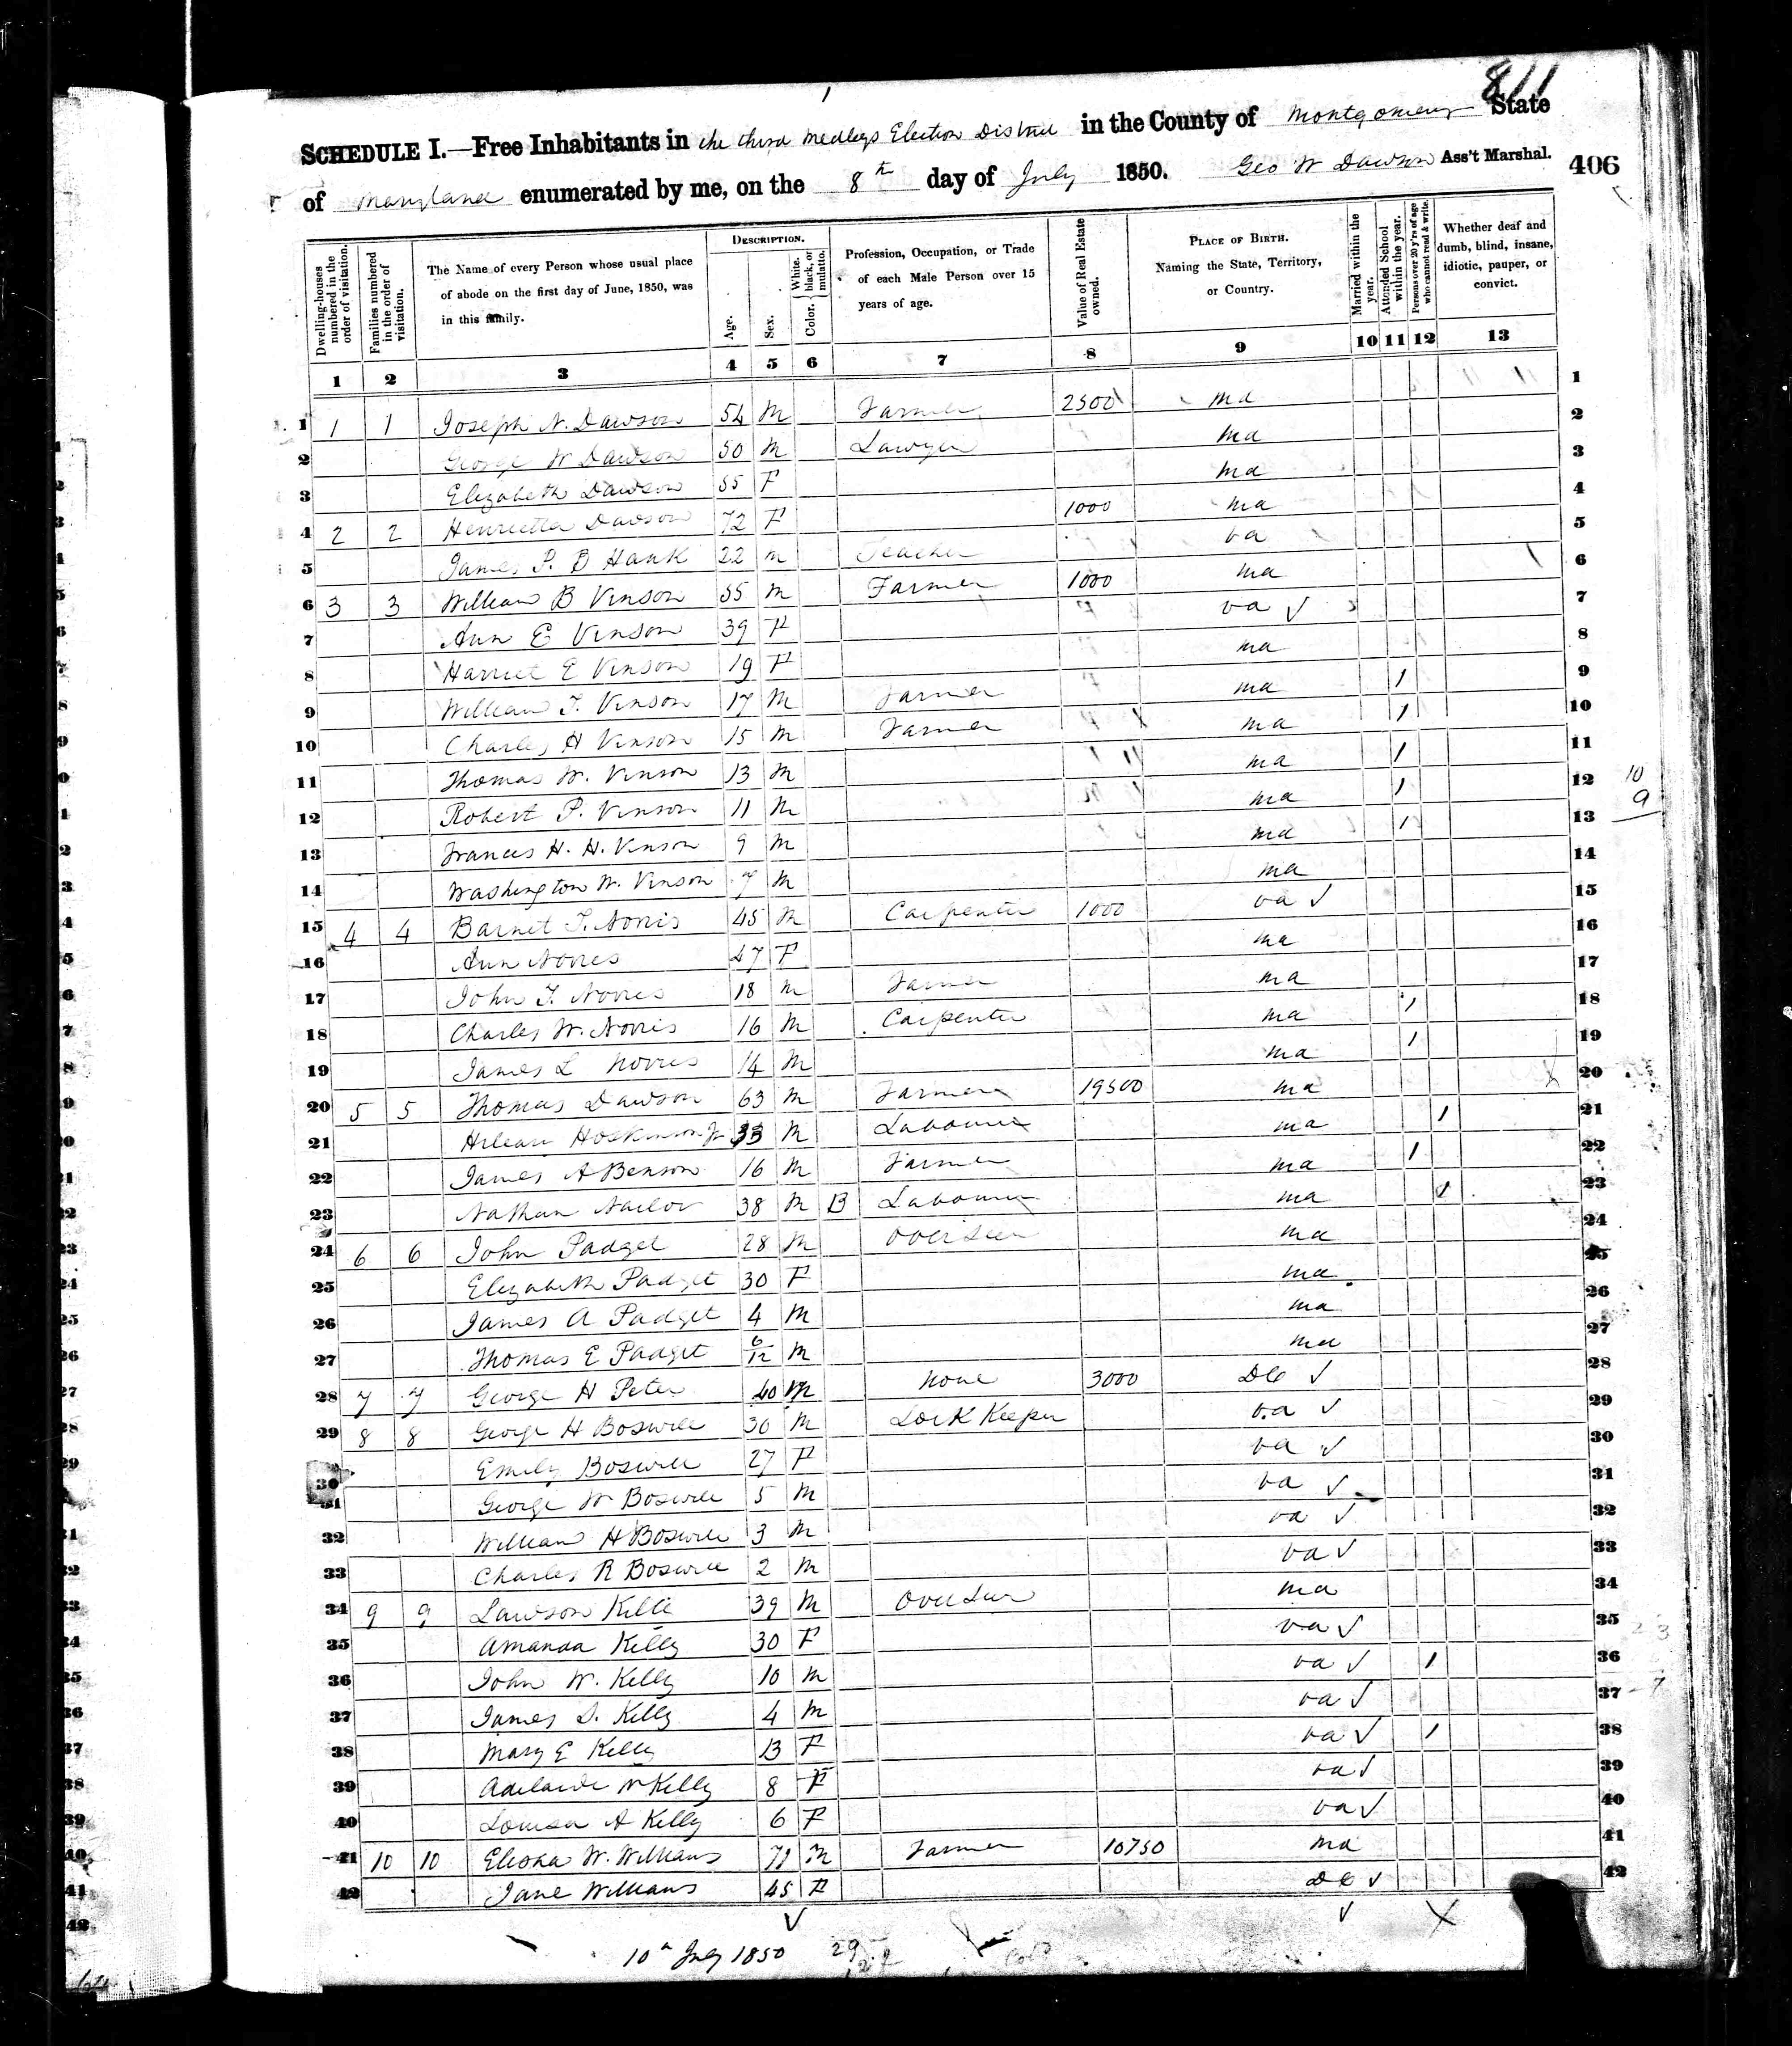 811
1
SCHEDULE I.—Free Inhabitants in the third Medleys Election District in the County of Montgomery State
of Maryland enumerated by me, on the 8th day of July 1850. Geo W Dawson Ass't Marshal.
406
Dwelling-houses numbered in the order of visitation.
Families numbered in the order of visitation.
The Name of every Person whose usual place of abode on the first day of June, 1850, was in this family.
DESCRIPTION.
Age.
Sex.
Color. White, black, or mulatto.
Profession, Occupation, or Trade of each Male Person over 15 years of age.
Value of Real Estate owned.
PLACE OF BIRTH. Naming the State, Territory, or Country.
Married within the year.
Attended School within the year.
Persons over 20 y'rs of age who cannot read & write.
Whether deaf and dumb, blind, insane, idiotic, pauper, or convict.
1 2 3 4 5 6 7 8 9 10 11 12 13
1 1 1 Joseph N. Dawson 54 M Farmer 2500 Md 1
2 George W Dawson 50 M Lawyer Md 2
3 Elizabeth Dawson 55 F Md 3
4 2 2 Henrietta Dawson 72 F 1000 Md 4
5 James P. B Hank 22 m Teacher va 5
6 3 3 William B Vinson 55 m Farmer 1000 Md 6
7 Ann E Vinson 39 F va ✓ 7
8 Harriet E Vinson 19 F Md 8
9 William T. Vinson 17 M Farmer Md 1 9
10 Charles H Vinson 15 M Farmer Md 1 10
11 Thomas W. Vinson 13 M Md 1 11
12 Robert P. Vinson 11 M Md 1 12
13 Frances H. H. Vinson 9 M Md 1 13
14 Washington W. Vinson 7 M Md 14
15 4 4 Barnet T. Norris 45 M Carpenter 1000 va ✓ 15
16 Ann Norres 47 F Md 16
17 John T. Norres 18 M Farmer Md 17
18 Charles W. Norris 16 M Carpenter Md 1 18
19 James L Norres 14 M Md 1 19
20 5 5 Thomas Dawson 63 M Farmer 19500 Md 20
21 Hoskinson Jr 33 M Labourer Md 1 21
22 James A Benson 16 M Farmer Md 1 22
23 Nathan Nailor 38 M B Labourer Md 1 23
24 6 6 John Padget 28 M Overseer Md 24
25 Elizabeth Padget 30 F Md 25
26 James A Padget 4 M Md 26
27 Thomas E Padget 6/12 M Md 27
28 7 7 George H Peter 40 M None 3000 DC ✓ 28
29 8 8 George H Boswell 30 M Lock Keeper va ✓ 29
30 Emily Boswell 27 F va ✓ 30
31 George W Boswell 5 M va ✓ 31
32 William H Boswell 3 M va ✓ 32
33 Charles R Boswell 2 M va ✓ 33
34 9 9 Lawson Kelle 39 M Overseer Md 34
35 Amanda Kelly 30 F va ✓ 35
36 John W. Kelly 10 M va ✓ 1 36
37 James S. Kelly 4 M va ✓ 37
38 Mary E Kelly 13 F va ✓ 1 38
39 Adelaide W Kelly 8 F va ✓ 39
40 Louisa A Kelly 6 F va ✓ 40
41 10 10 Elisha W. Williams 71 M Farmer 10750 Md 41
42 Jane Williams 45 F DC ✓ 42
10
9
10th July 1850
29